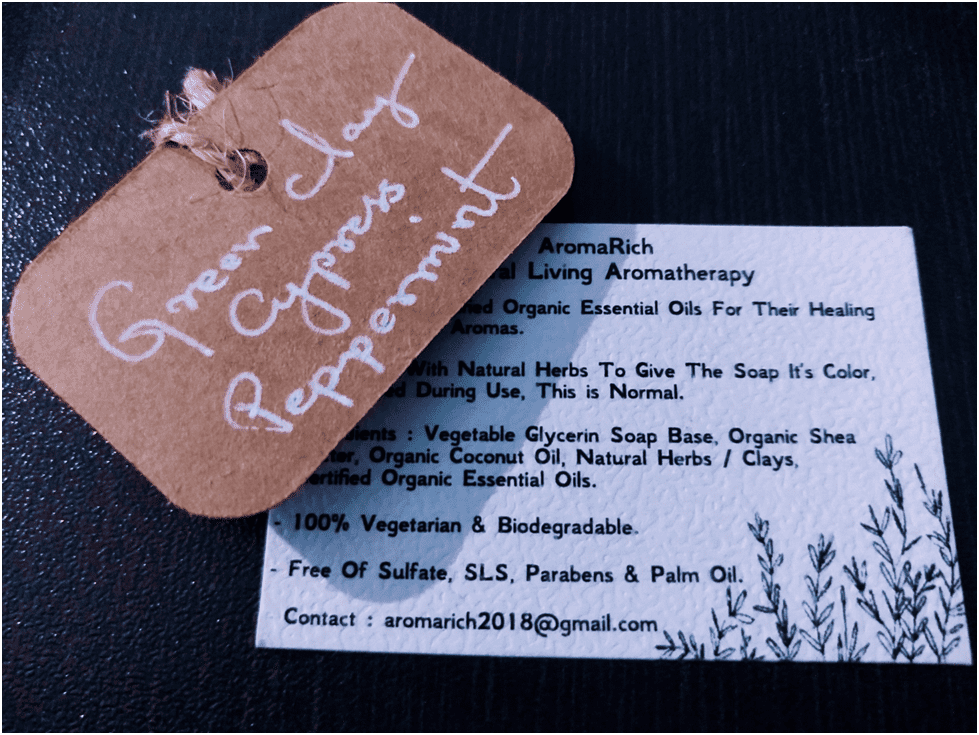 Green Clay
Cypress
Peppermint
AromaRich
Living Aromatherapy
Organic Essential Oils For Their Healing
Aromas.
With Natural Herbs To Give The Soap It's Color,
During Use, This is Normal.
: Vegetable Glycerin Soap Base, Organic Shea
Organic Coconut Oil, Natural Herbs / Clays,
Organic Essential Oils.
- 100% Vegetarian & Biodegradable.
- Free Of Sulfate, SLS, Parabens & Palm Oil.
Contact : aromarich2018@gmail.com